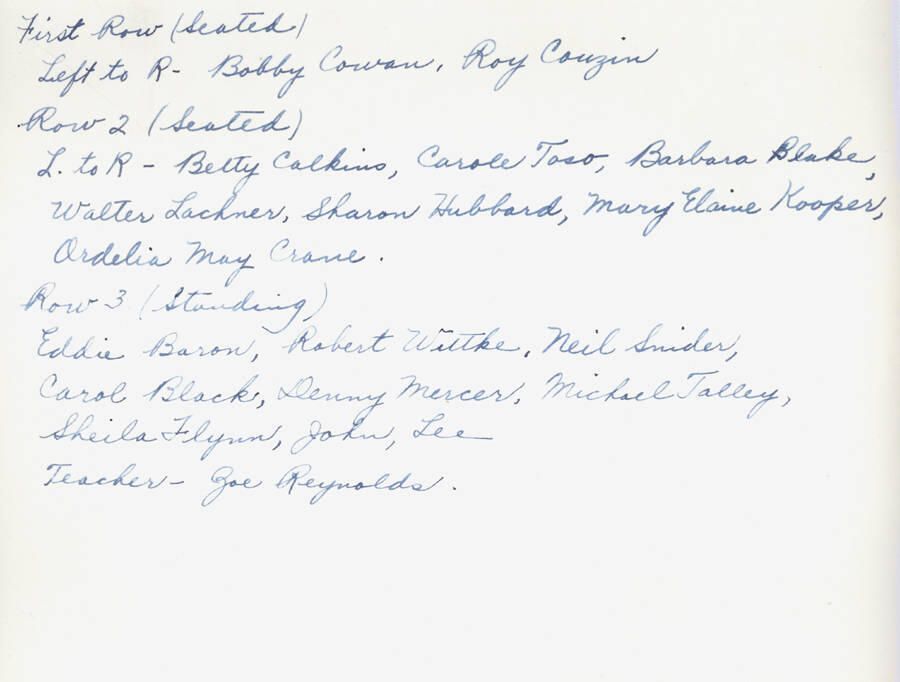 First Row (Seated)
Left to R - Bobby Cowan, Roy Couzin
Row 2 (Seated)
L. to R - Betty Calkins, Carole Taso, Barbara Blake,
Walter Lachner, Sharon Hubbard, Mary Elaine Kooper,
Ordelia May Crane.
Row 3 (Standing)
Eddie Baron, Robert Wittke, Neil Snider,
Carol Black, Denny Mercer, Michael Talley,
Sheila Flynn, John, Lee
Teacher - Zoe Reynolds.